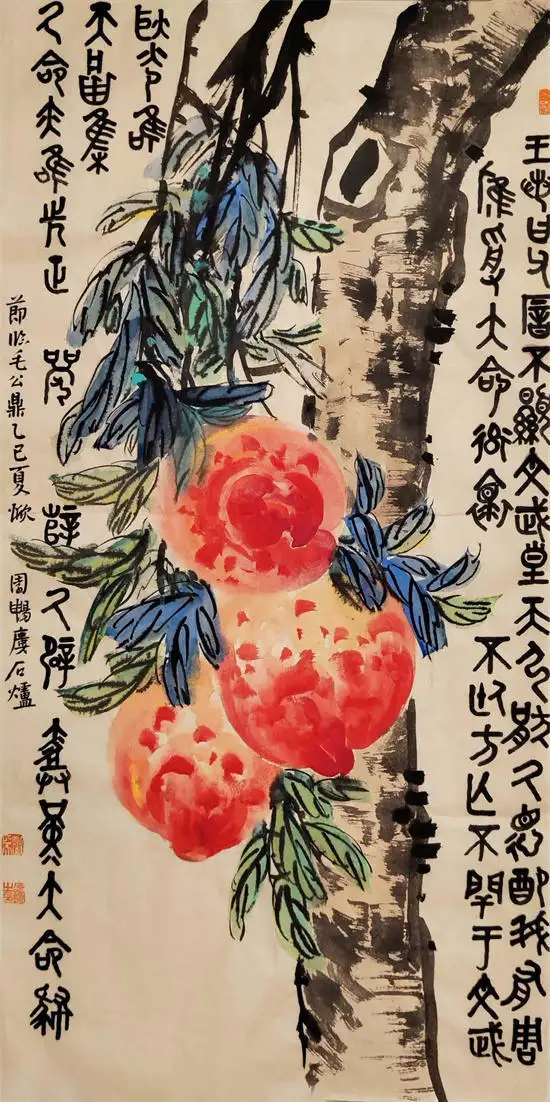 王若曰父厝不顯文武皇天弘猒厥德配我有周
膺受大命率懷不廷方亡不閈于文武
耿光唯
天㽙集
厥命亦唯先正襄辥厥辟𤔲堇大命肆
節臨毛公鼎乙巳夏 周暢廔石爐